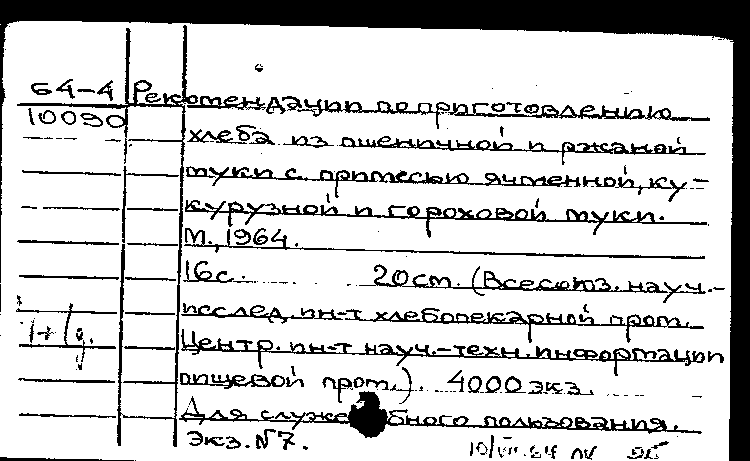 64-4 Рекомендации по приготовлению
10090
хлеба из пшеничной и ржаной
муки с примесью ячменной, ку-
курузной и гороховой муки.
М., 1964.
16с. 20см. (Всесоюз. науч.-
исслед. ин-т хлебопекарной пром.
Центр. ин-т науч.-техн. информации
пищевой пром.). 4000 экз.
Для служебного пользования.
Экз. №7.
10/VII.64